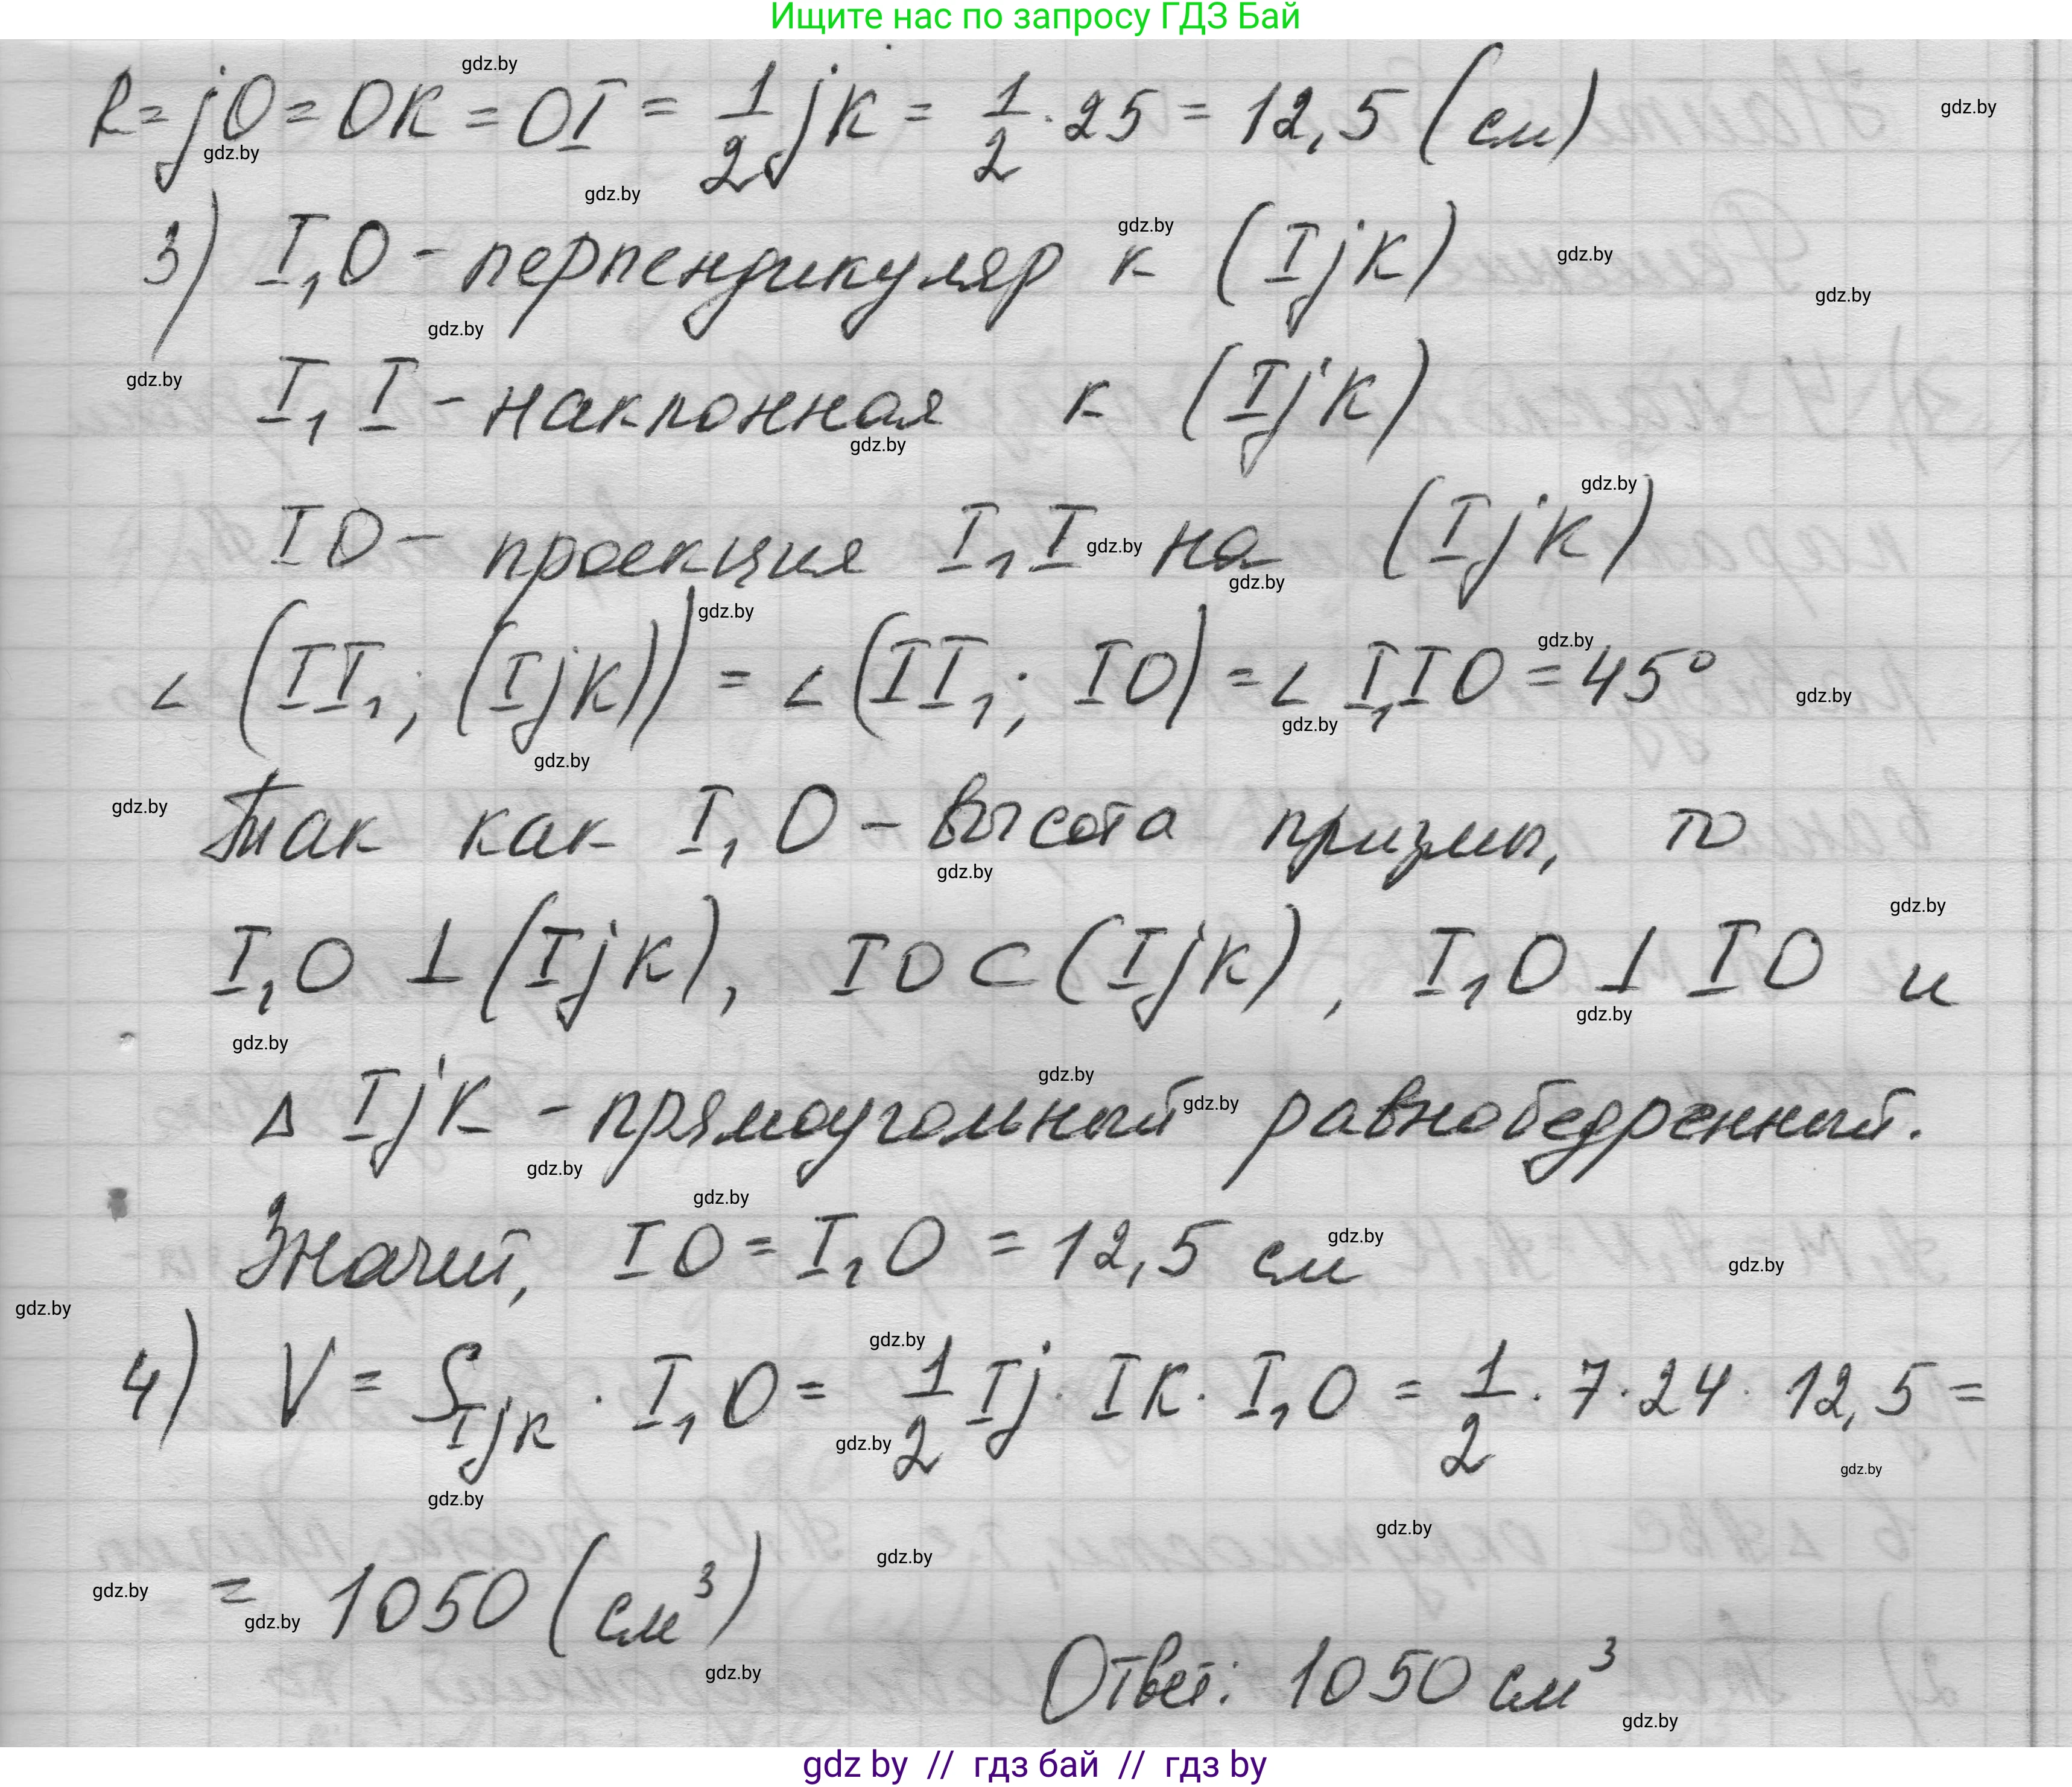 Ищите нас по запросу ГДЗ Бай
R = jO = OK = OI = 1/2 jk = 1/2 · 25 = 12,5 (см)
3) I₁O - перпендикуляр к (Ijk)
I₁I - наклонная к (Ijk)
IO - проекция I₁I на (Ijk)
∠(II₁; (Ijk)) = ∠(II₁; IO) = ∠I₁IO = 45°
Так как I₁O - высота призмы, то
I₁O ⊥ (Ijk), IO ⊂ (Ijk), I₁O ⊥ IO и
Δ Ijk - прямоугольный равнобедренный.
Значит, IO = I₁O = 12,5 см
4) V = S_Ijk · I₁O = 1/2 Ij · Ik · I₁O = 1/2 · 7 · 24 · 12,5 =
= 1050 (см³)
Ответ: 1050 см³
gdz by // гдз бай // гдз by